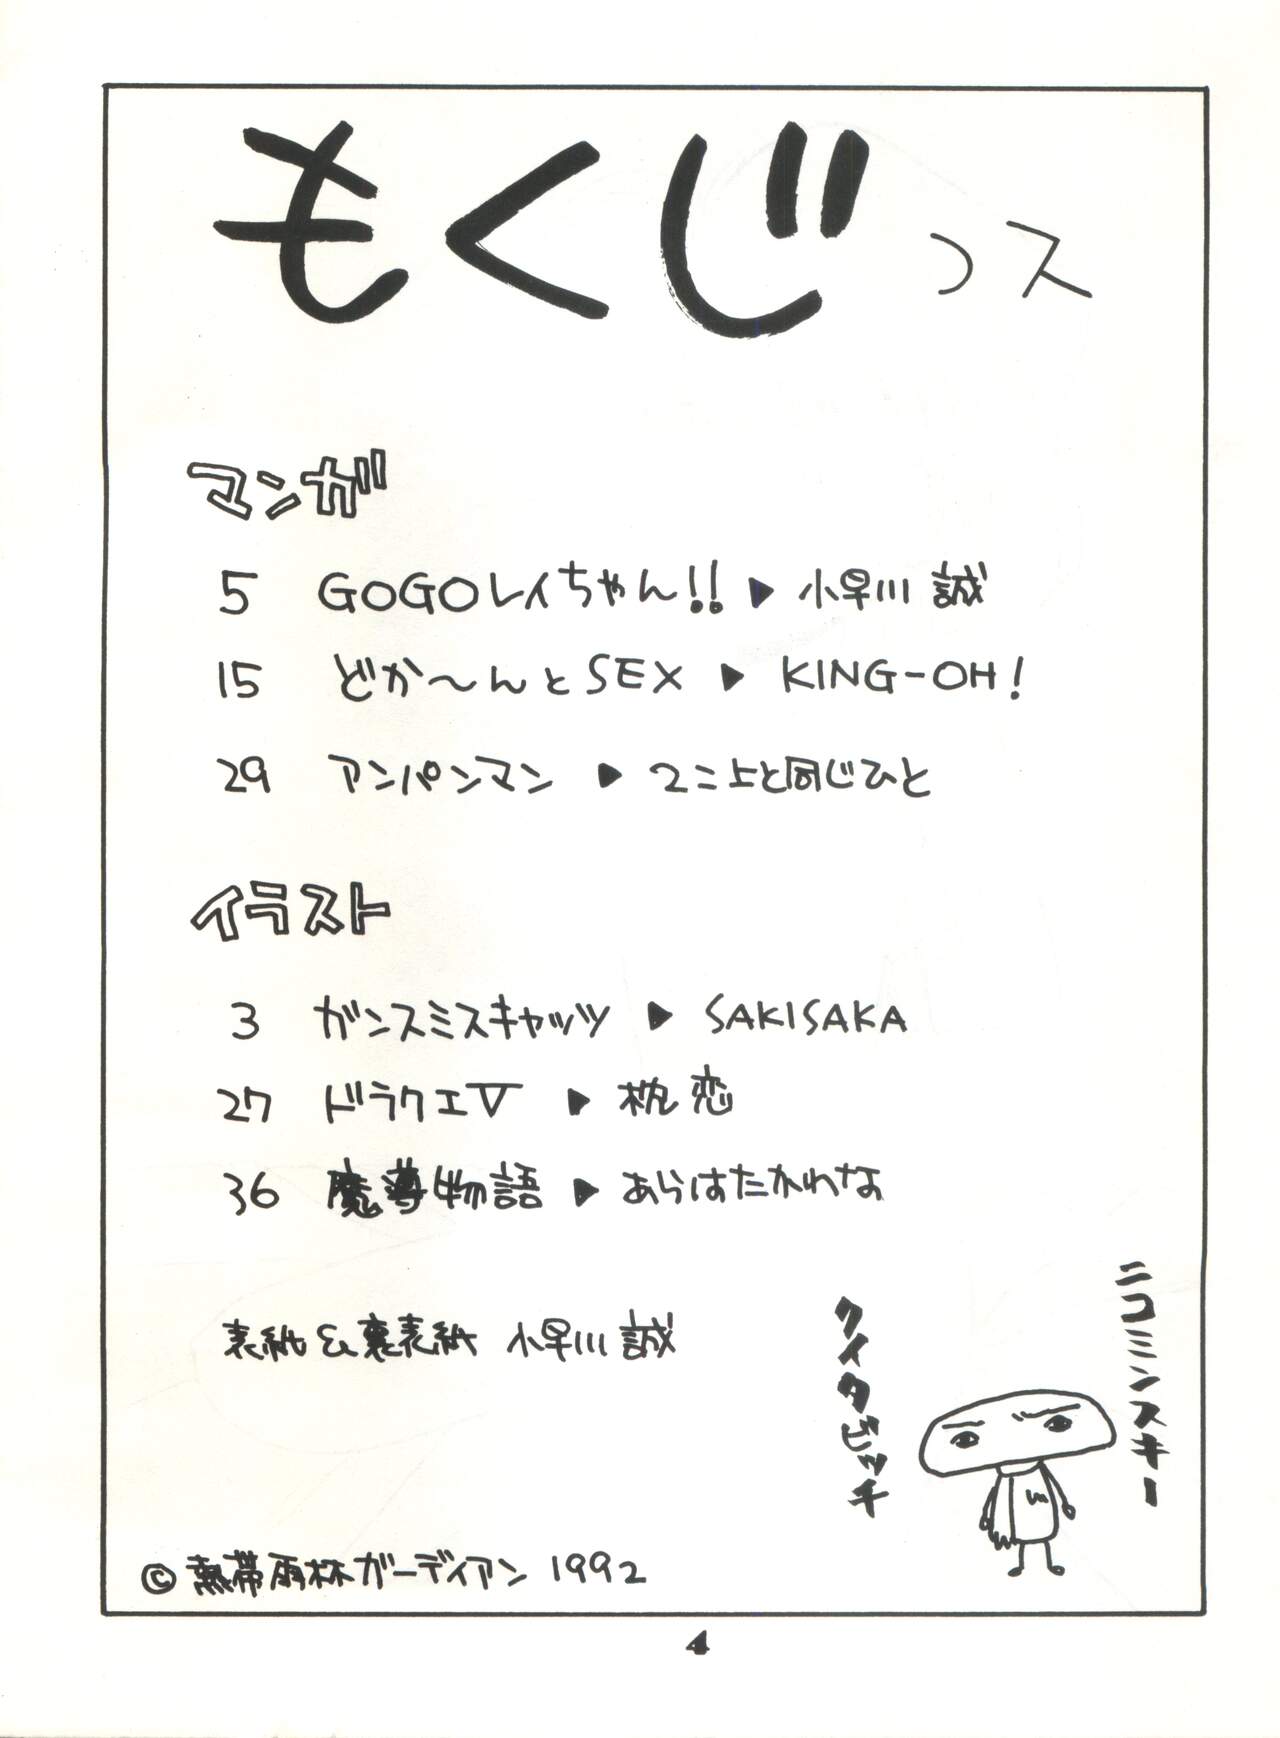 もくじっス
マンガ
5 GOGOレイちゃん!! ▶ 小早川 誠
15 どか〜んとSEX ▶ KING-OH!
29 アンパンマン ▶ 2コ上と同じひと
イラスト
3 ガンスミスキャッツ ▶ SAKISAKA
27 ドラクエV ▶ 枕恋
36 魔導物語 ▶ あらはたかわな
表紙&裏表紙 小早川 誠
ニコミンスキー
クイタビッチ
© 熱帯雨林ガーディアン 1992
4